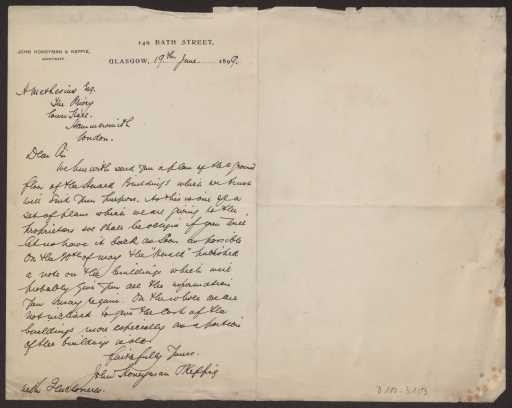 140 BATH STREET,
JOHN HONEYMAN & KEPPIE,
ARCHITECTS
GLASGOW, 19th June 1899.
H Muthesius Esq.
The Priory
Hammersmith
London.
Dear Sir
We herewith send you a plan of the ground
floor of the Herald Buildings which we trust
will suit your purpose. As this is one of a
set of plans which we are giving to the
Proprietors we shall be obliged if you will
let us have it back as soon as possible
On the 30th of May the "Herald" published
a note on the buildings which will
probably give you all the information
you may require. On the whole we are
not inclined to give the cost of the
buildings more especially as a portion
of the buildings is old.
Faithfully Yours.
John Honeyman & Keppie
with Enclosures.
D 102-